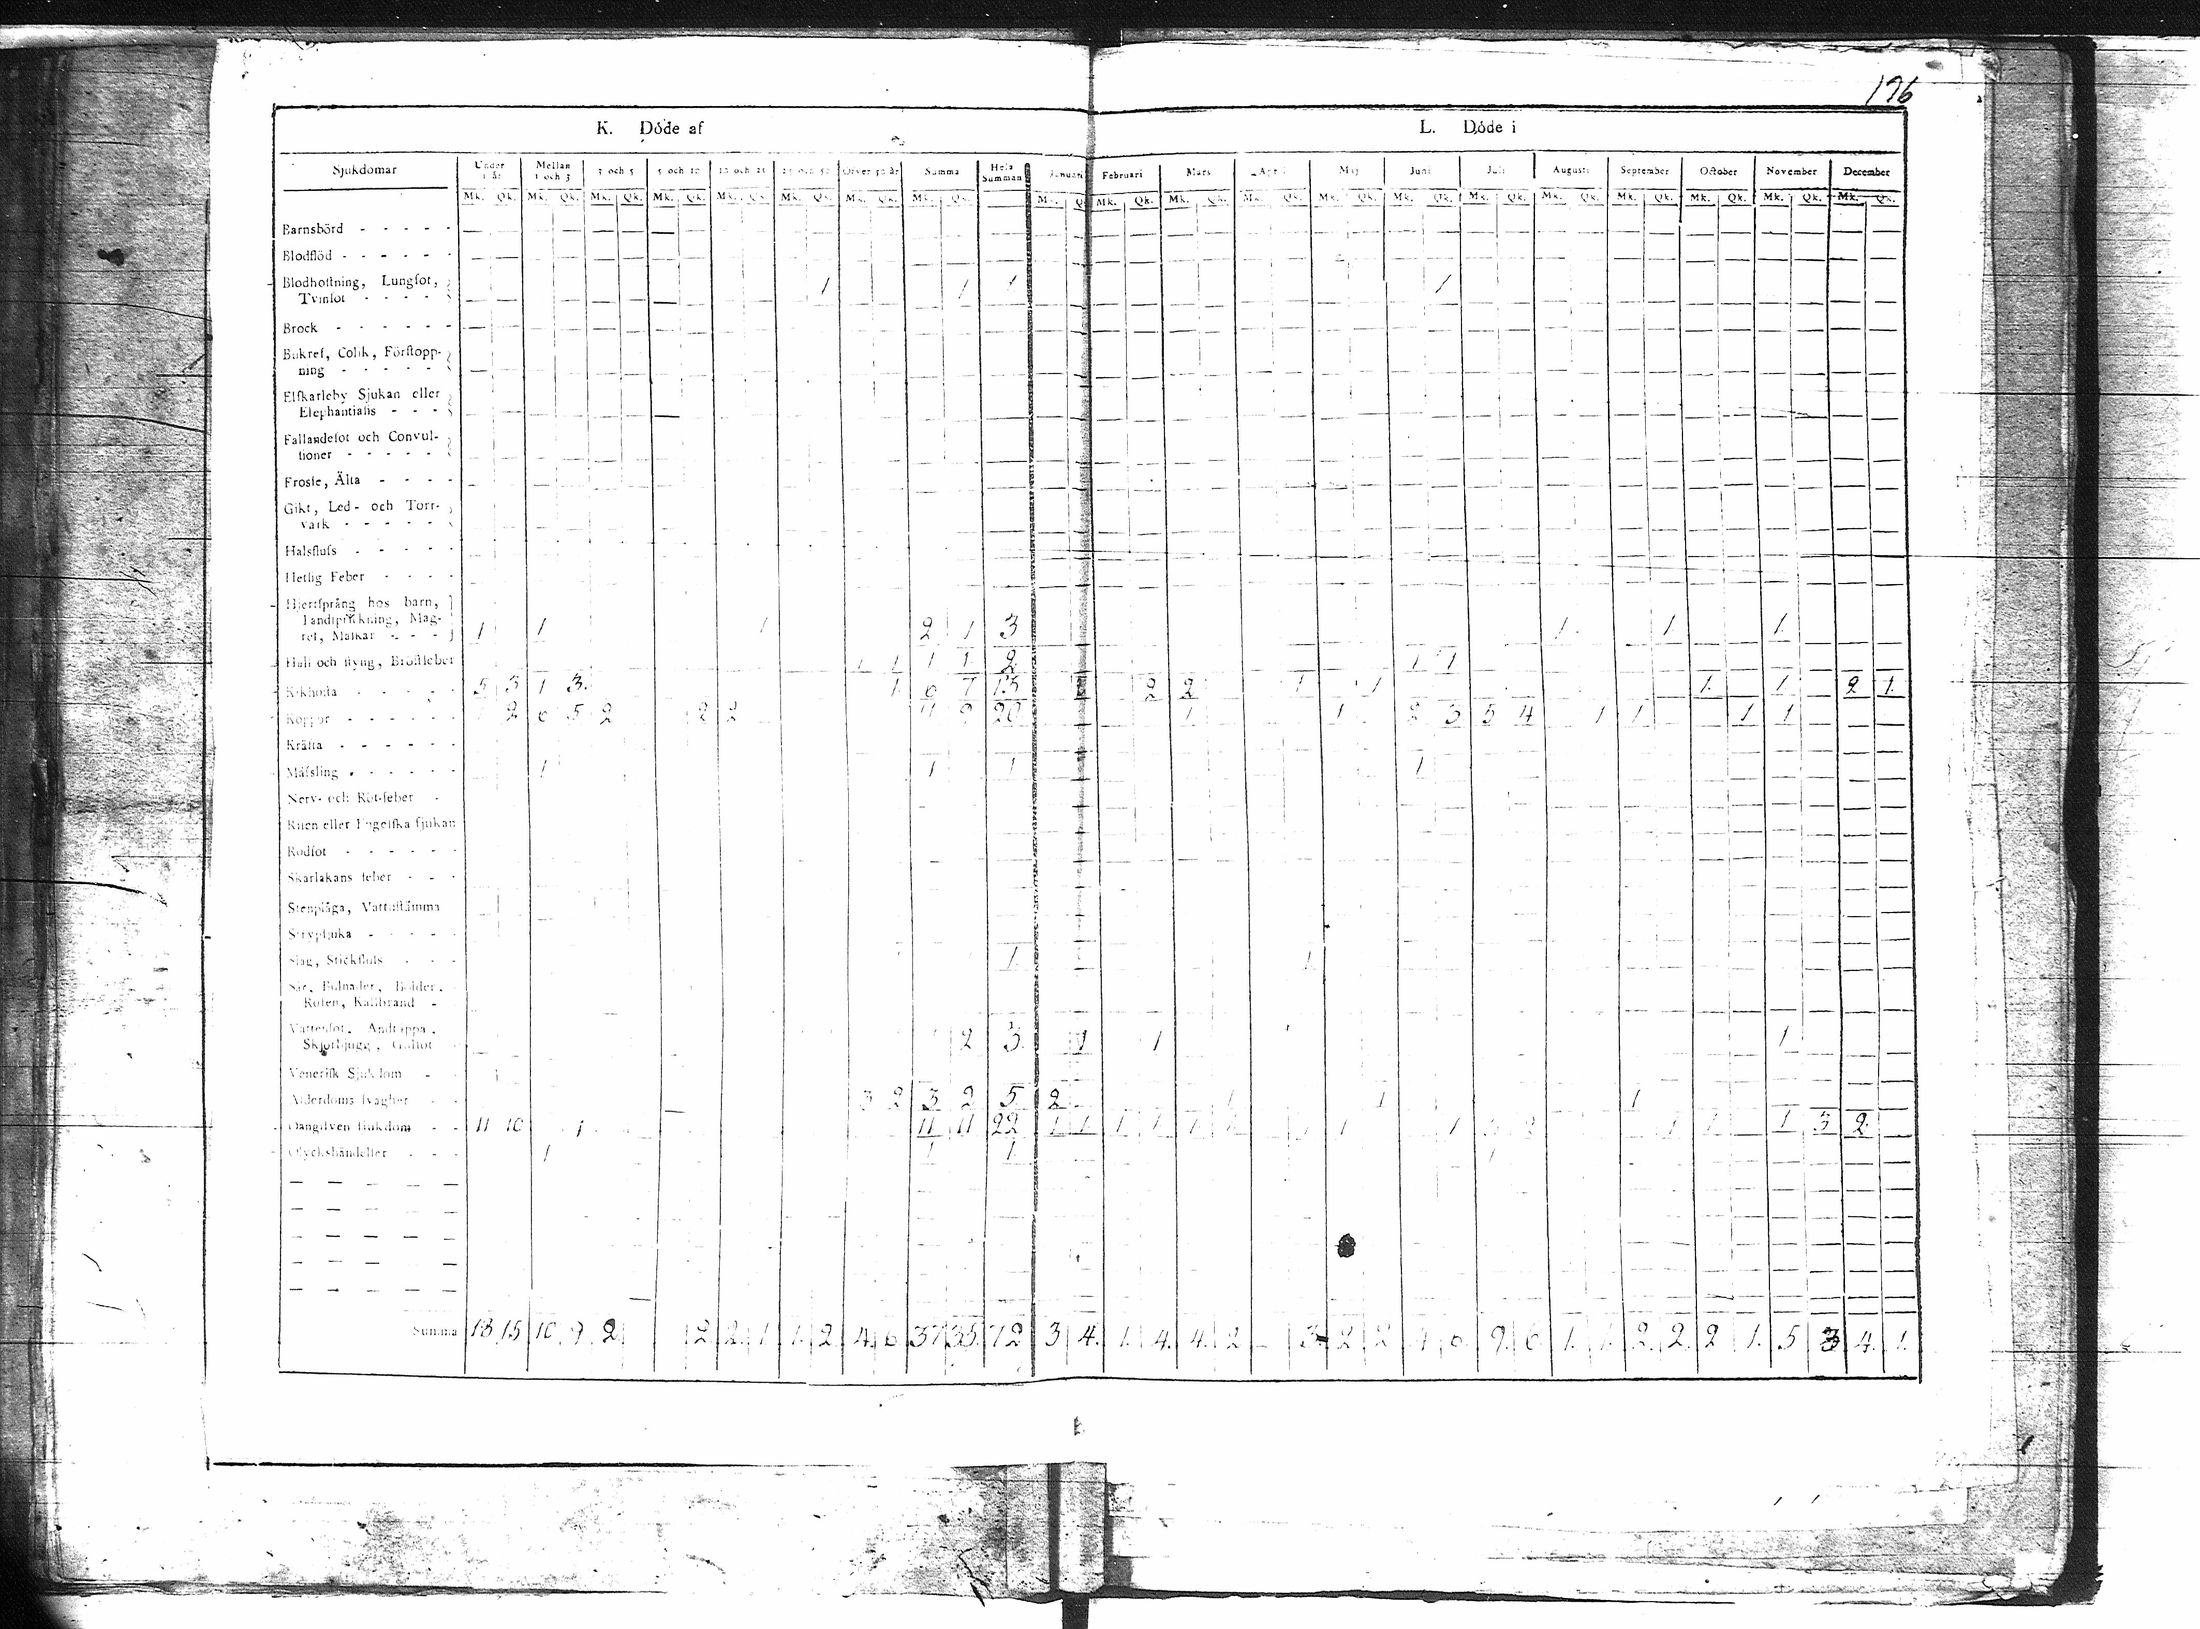 176
K. Döde af
L. Döde i
Sjukdomar Under 1 år Mellan 1 och 3 3 och 5 5 och 10 10 och 25 25 och 50 Öfver 50 år Summa Hela Summan Januari Februari Mars April Maj Juni Juli Augusti September October November December
Mk. Qk. Mk. Qk. Mk. Qk. Mk. Qk. Mk. Qk. Mk. Qk. Mk. Qk. Mk. Qk. Mk. Q Mk. Qk. Mk. Qk. Mk. Qk. Mk. Qk. Mk. Qk. Mk. Qk. Mk. Qk. Mk. Qk. Mk. Qk. Mk. Qk. Mk. Qk.
Barnsbörd - - - - -
Blodflöd - - - - - -
Blodhostning, Lungsot,
Tvinsot - - - - 1 1 1 1
Brock - - - - - -
Bukref, Colik, Förstopp-
ning - - - - -
Elfkarleby Sjukan eller
Elephantiasis - - -
Fallandesot och Convul-
sioner - - - - -
Frossa, Älta - - - -
Gikt, Led- och Torr-
värk - - - - -
Halsfluss - - - - -
Hetsig Feber - - - -
Hjertsprång hos barn,
Tandsprickning, Mag-
ref, Maskar - - - 1 1 1 2 1 3 1 1 1
Håll och styng, Bröstfeber 1 1 1 1 2 1 1
Kikhosta - - - - - 5 3 1 3 1 6 7 13 1 2 2 1 1 1 1 2 1
Koppor - - - - - - 2 6 5 2 2 2 11 9 20 1 1 2 3 5 4 1 1 1 1
Kräfta - - - - - -
Mässling - - - - - - 1 1 1 1
Nerv- och Röt-feber -
Risen eller Engelska sjukan
Rödsot - - - - - -
Skarlakans feber - - -
Stenplåga, Vattustämma
Strypsjuka - - - -
Slag, Stickfluss - - - 1 1
Sår, Bulnader, Bölder,
Rosen, Kallbrand -
Vattusot, Andtäppa,
Skjörbjugg, Gulsot 2 3 1 1 1
Venerisk Sjukdom - -
Ålderdoms svaghet - - 3 2 3 2 5 2 1 1 1
Oangifven sjukdom - - 11 10 1 11 11 22 1 1 1 1 1 1 1 1 3 2
Olyckshändelser - - - 1 1 1 1
Summa 18 15 10 9 2 2 2 1 1 2 4 6 37 35 72 3 4 1 4 4 2 3 2 2 4 6 9 6 1 1 2 2 2 1 5 3 4 1